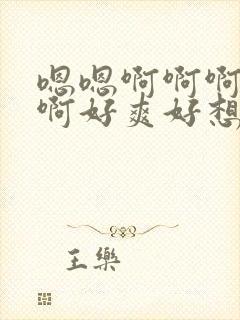 嗯嗯啊啊啊
啊好爽好想
王樂